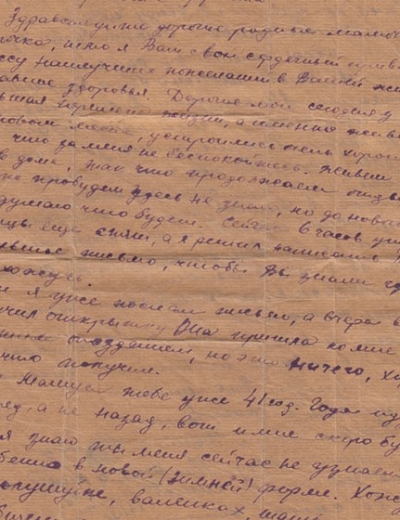 Здравствуйте дорогие родные мамочка
шлю я Вам свой сердечный привет
массу наилучших пожеланий в Вашей жизни
главное здоровья. Дорогие мои сегодня у
перемена жизни, а именно живём
новом месте, устроились очень хорошо
что за меня не беспокойтесь. Живём
в доме, так что продолжаем
не пробудем здесь не знаю, но до нового
думаю что будем. Сейчас 6 часов утра
еще спят, а я решил написать
письмо, чтобы Вы знали где
нахожусь.
я уже послал письмо, а вчера
получил открытку Она пришла ко мне
опозданием, но это ничего,
что получил.
Мамуся тебе уже 41 год. Года идут
а не назад, вот и мне скоро бу
я знаю ты меня сейчас не узнаешь
в новой (зимней) форме.
валенках,